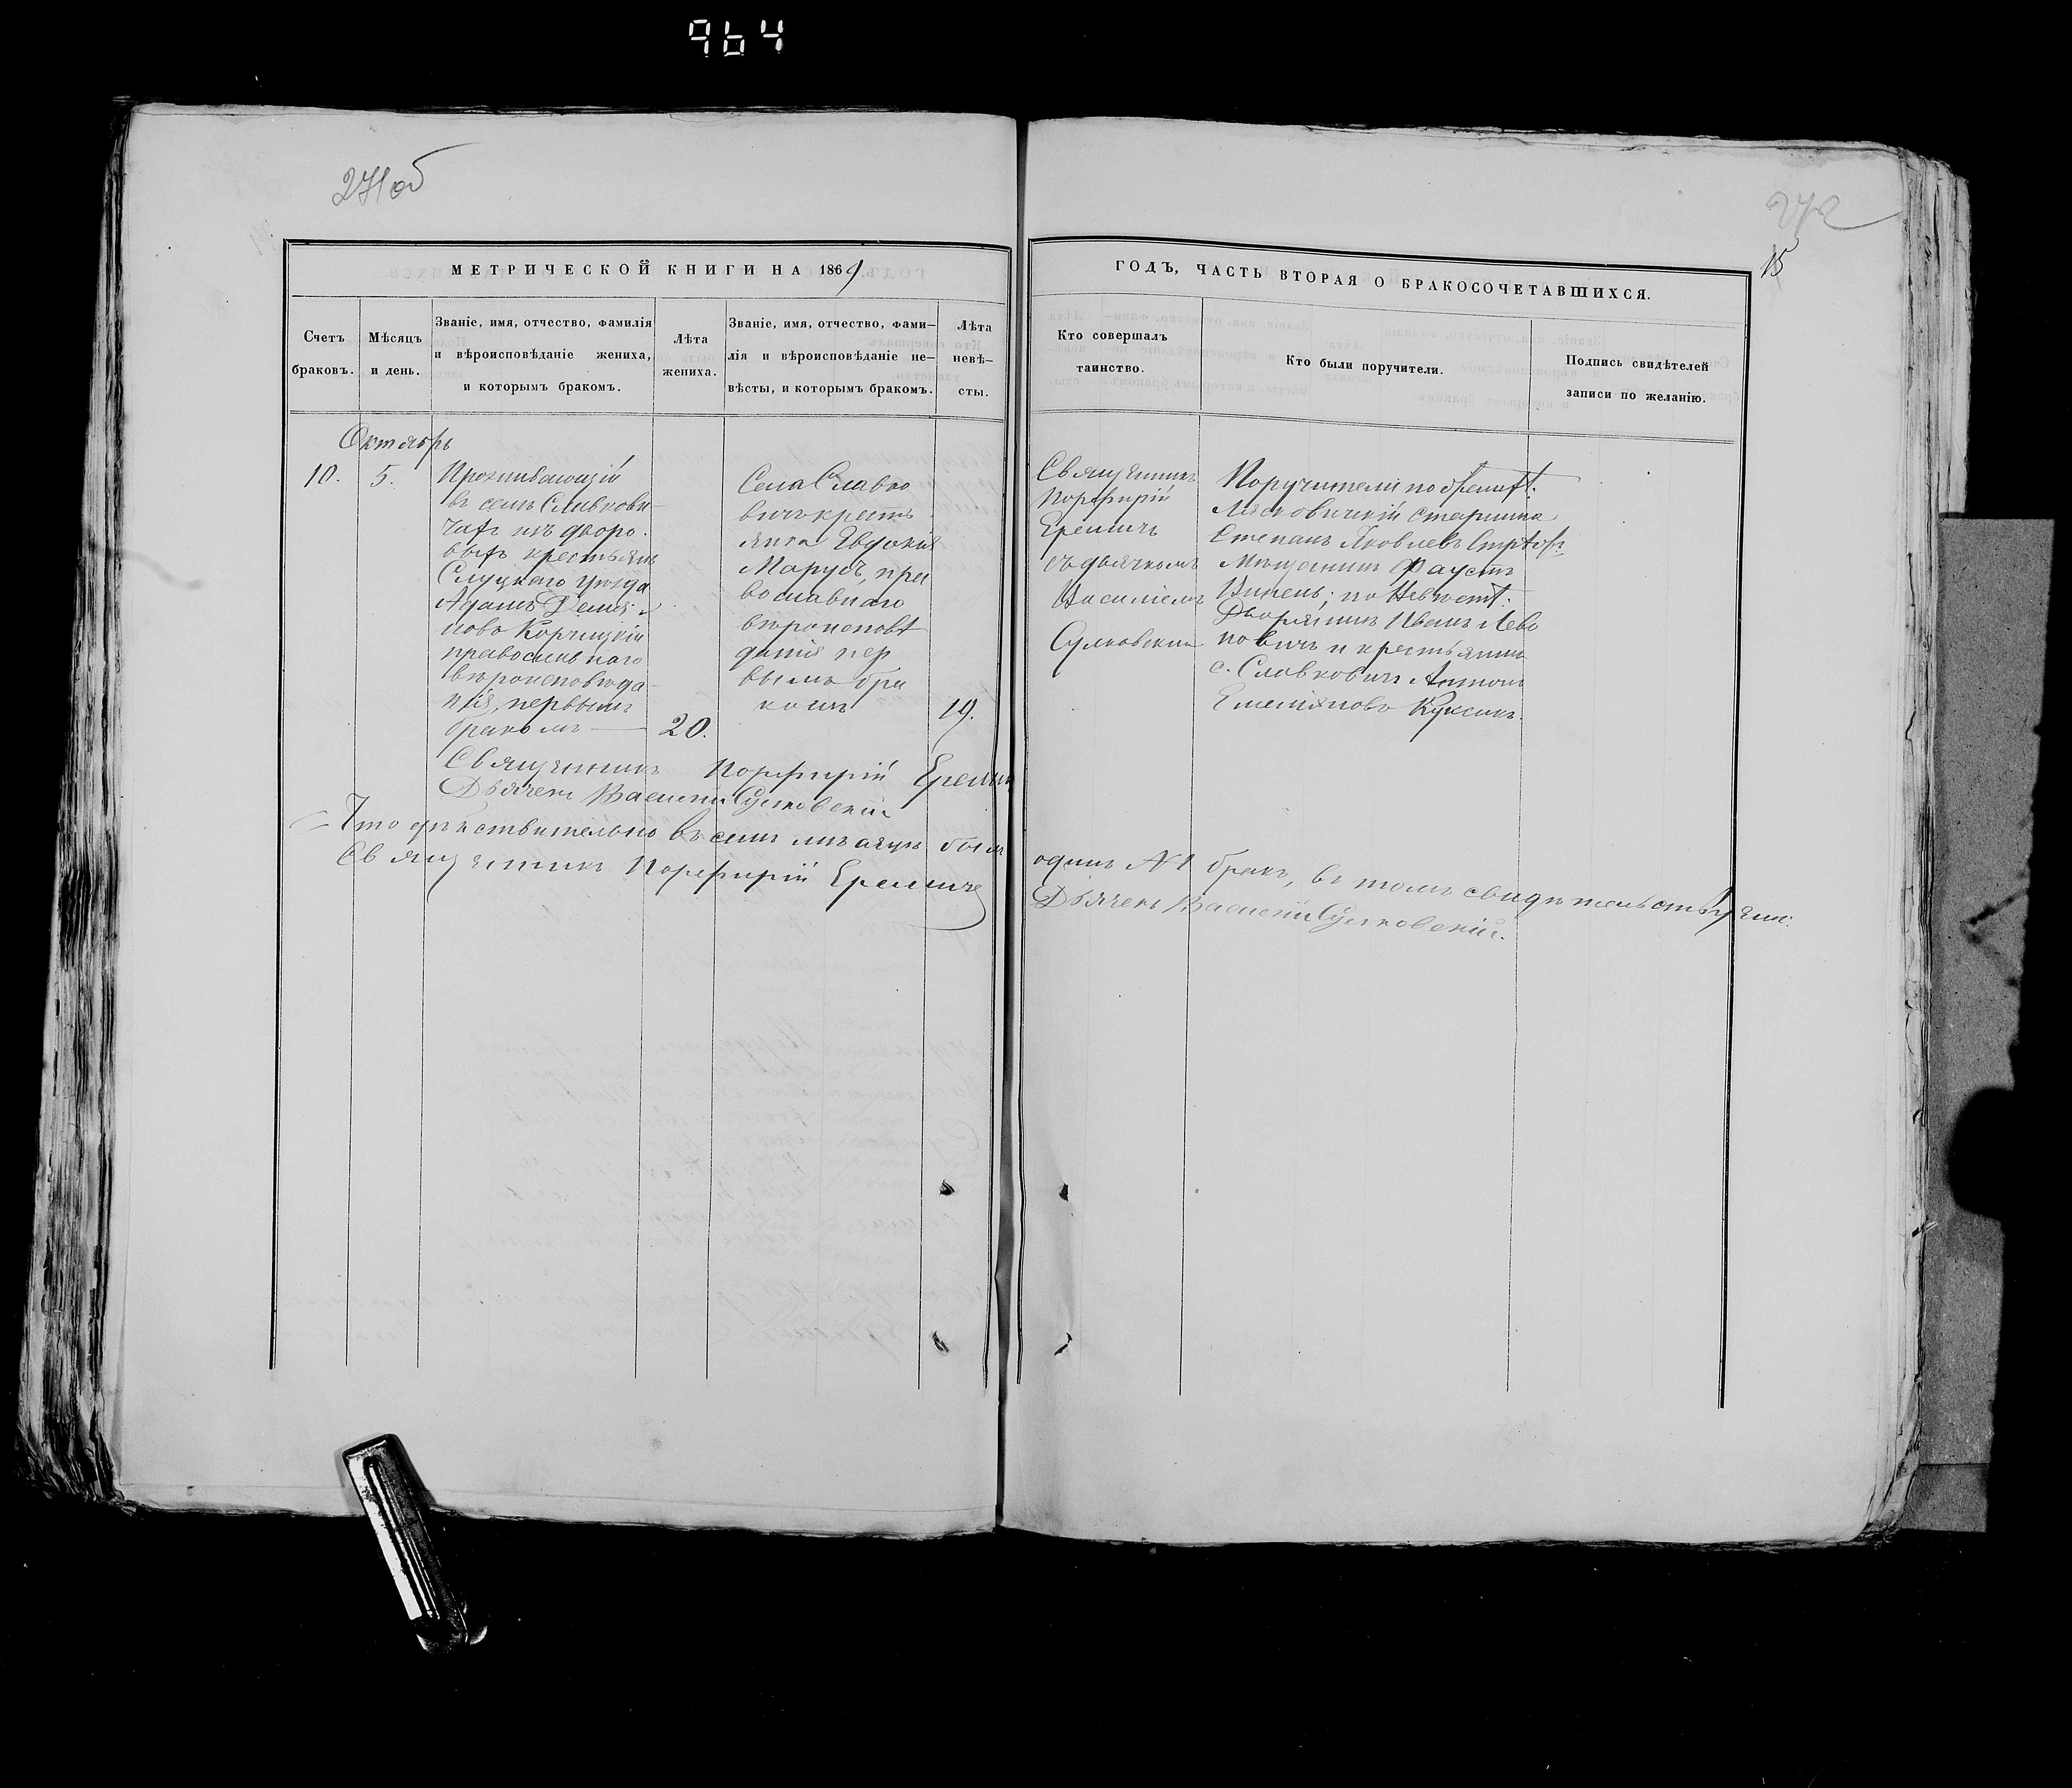 964
271об
272
15
МЕТРИЧЕСКОЙ КНИГИ НА 1869
ГОДЪ, ЧАСТЬ ВТОРАЯ О БРАКОСОЧЕТАВШИХСЯ.
Счетъ
браковъ.
Мѣсяцъ
и день.
Званіе, имя, отчество, фамилія
и вѣроисповѣданіе жениха,
и которымъ бракомъ.
Лѣта
жениха.
Званіе, имя, отчество, фами-
лія и вѣроисповѣданіе не-
вѣсты, и которымъ бракомъ.
Лѣта
невѣ-
сты.
Кто совершалъ
таинство.
Кто были поручители.
Подпись свидѣтелей
записи по желанію.
Октябрь
10.
5.
Проживающій
въ селѣ Славкови-
чахъ изъ дворо-
выхъ крестьянъ
Слуцкаго уѣзда
Адамъ Демья-
новъ Корчицкій
православнаго
вѣроисповѣда-
нія, первымъ
бракомъ
20.
Села Славко
вичъ крестъ
янка Евдокія
Марусъ, пра
вославнаго
вѣроисповѣ
данія пер
вымъ бра
комъ
19.
Священникъ
Порфирій
Еремичъ
съ дьячкомъ
Василіемъ
Сулковскимъ
Поручители по женихѣ:
Лясковичскій старшина
Степанъ Яковлевъ
Мѣщанинъ Фаустъ
по Невѣстѣ:
Дворянинъ Иванъ Лево
новичъ и крестьянинъ
с. Славковичъ Антонъ
Емеліяновъ Куксикъ.
Священникъ Порфирій Еремичъ
Дьячекъ Василій Сулковскій
Что дѣйствительно въ семъ мѣсяцѣ былъ одинъ №1 бракъ, въ томъ свидѣтельствуемъ:
Священникъ Порфирій Еремичъ
Дьячекъ Василій Сулковскій.